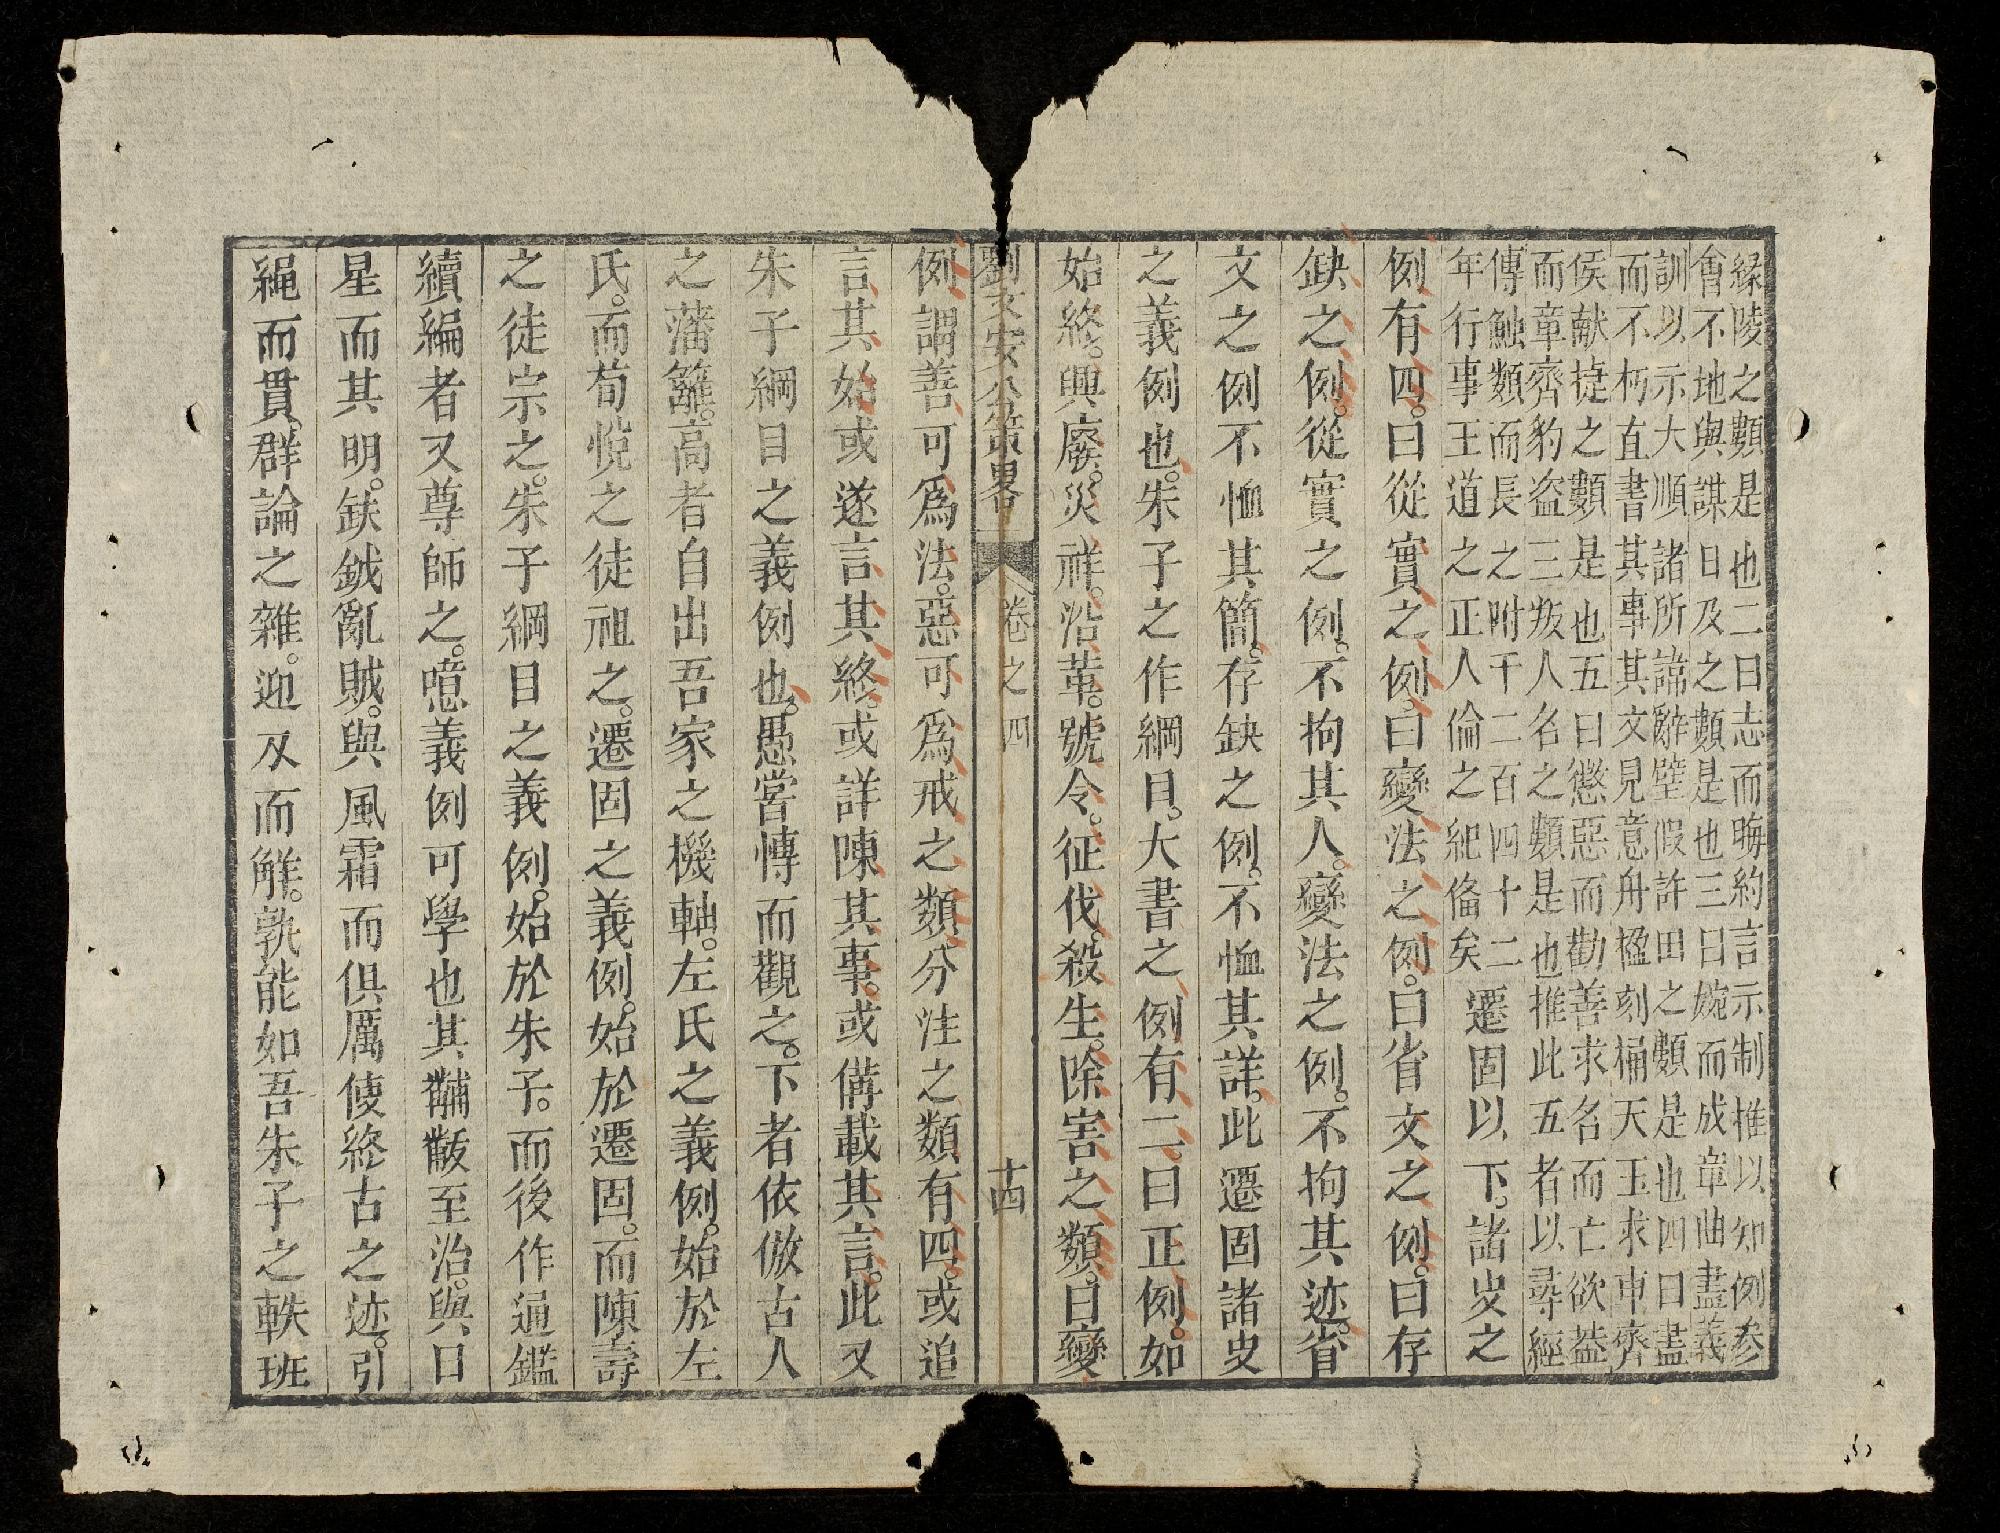 緣陵之類是也二曰志而晦約言示制推以知例參
會不地與謀曰及之類是也三曰婉而成章曲盡義
訓以示大順諸所諱辭璧假許田之類是也四曰盡
而不朽直書其事其文見意舟楹刻桷天王求車齊
侯献捷之類是也五曰懲惡而勸善求名而亡欲葢
而章齊豹盗三叛人名之類是也推此五者以尋經
傳触類而長之附于二百四十二
年行事王道之正人倫之紀俻矣
遷固以下。諸史之
例有四。曰從實之例。曰變法之例。曰省文之例。曰存
缺之例。從實之例。不拘其人。變法之例。不拘其迹。省
文之例不恤其簡。存缺之例。不恤其詳。此遷固諸史
之義例也。朱子之作綱目。大書之例有二。曰正例。如
始終。興廢。災祥。沿革。號令。征伐。殺生。除害之類。曰變
劉文安公策畧 卷之四 十四
例謂善可爲法。惡可爲戒之類分注之類有四。或追
言其始或遂言其終。或詳陳其事。或備載其言。此又
朱子綱目之義例也。愚嘗慱而觀之。下者依倣古人
之藩籬。高者自出吾家之機軸。左氏之義例。始於左
氏。而荀悅之徒祖之。遷固之義例。始於遷固。而陳壽
之徒宗之。朱子綱目之義例。始於朱子。而後作通鑑
續編者又尊師之。噫義例可學也其黼黻至治。與日
星而其明。鈇鉞亂賊。與風霜而俱厲使終古之迹。引
繩而貫群論之雜。迎刃而觧。孰能如吾朱子之軼班